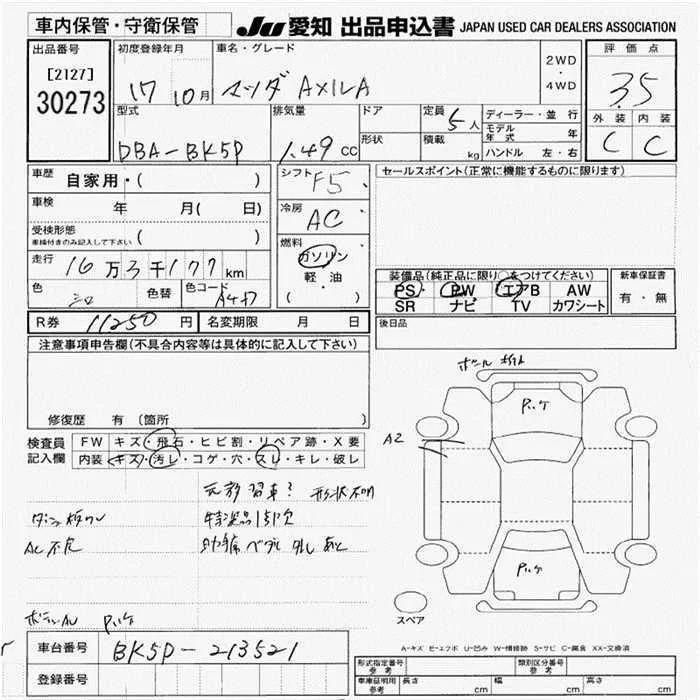 車内保管・守衛保管 JU 愛知 出品申込書 JAPAN USED CAR DEALERS ASSOCIATION
出品番号 初度登録年月 車名・グレード 2WD ・ 4WD 評価点
[2127]
30273 17 10月 マツダ AXILA 3.5
型式 排気量 ドア 定員 5人 ディーラー・並行 外装 内装
モデル年式 年 C C
DBA-BK5P 1.49cc 形状 積載 kg ハンドル 左・右
車歴 自家用・( ) シフト F5 セールスポイント(正常に機能するものに限ります)
車検 年 月( 日) 冷房 AC
受検形態 ( )
車検付きのみ記入して下さい
燃料 ガソリン 軽・油 ( )
走行 16万3千177km 装備品(純正品に限り○をつけてください) 新車保証書
色 シロ 色替 色コード A4D PS PW エアB AW 有・無
SR ナビ TV カワシート
R券 11250円 名変期限 月 日 後日品
注意事項申告欄(不具合内容等は具体的に記入して下さい)
修復歴 有 (箇所 )
検査員 FW キズ・飛石・ヒビ割・リペア跡・X要
記入欄 内装 キズ・汚レ・コゲ・穴・スレ・キレ・破レ
A2
元教習車? 形状不明
AC不良 助手席ペダル外しあと
スペア
A-キズ E-エクボ U-凹み W-補修跡 S-サビ C-腐食 XX-交換済
車台番号 BK5P-213521
登録番号
形式指定番号 参考 類別区分番号 参考
車庫証明用 参考 長さ cm 幅 cm 高さ cm